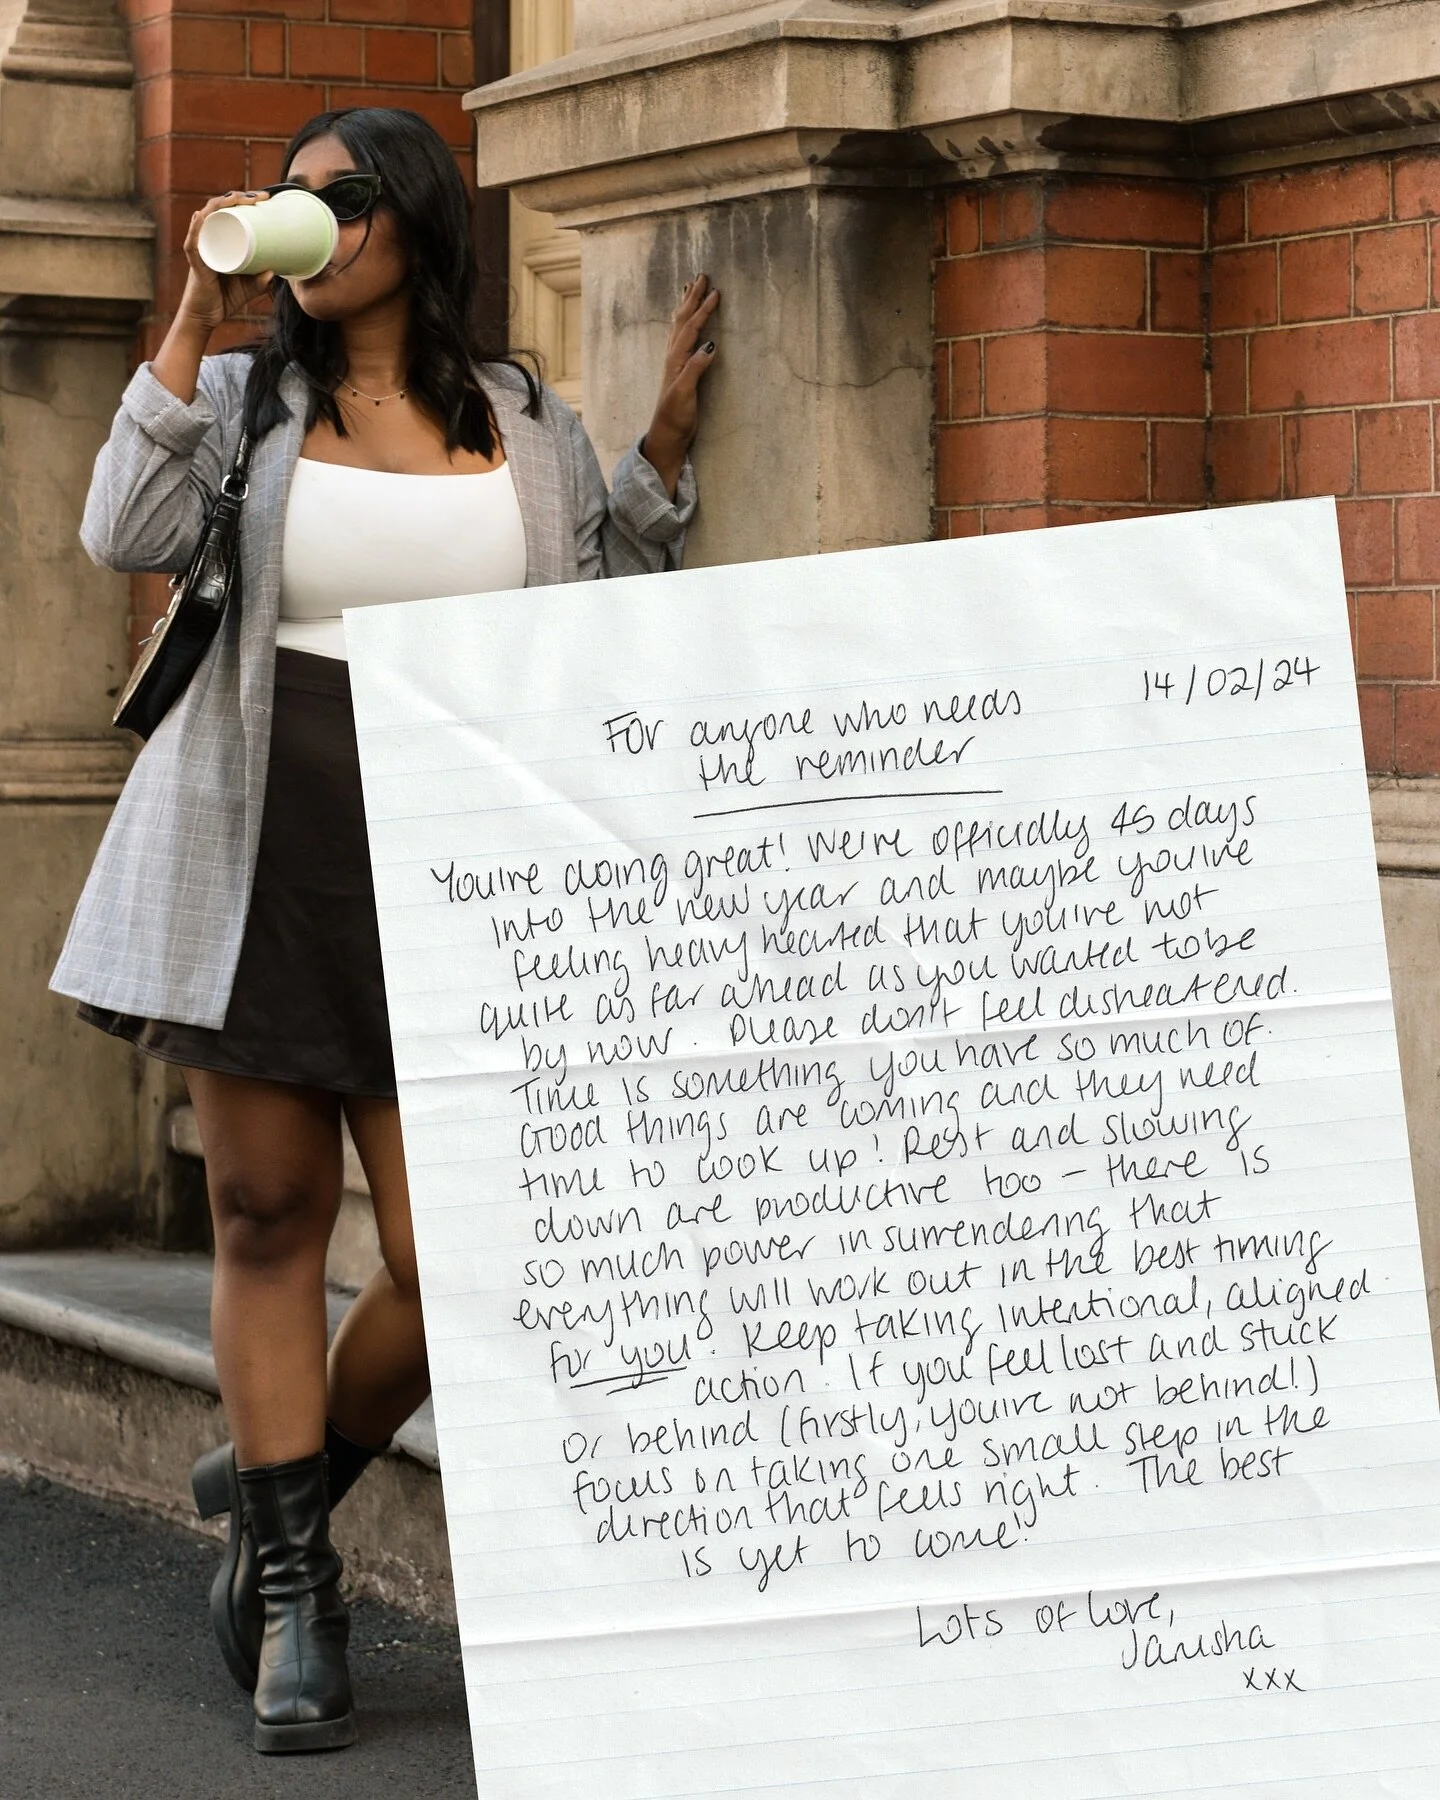 14/02/24
For anyone who needs
the reminder
You're doing great! We're officially 45 days
into the new year and maybe you're
feeling heavy hearted that you're not
quite as far ahead as you wanted to be
by now. Please don't feel disheartered.
Time is something you have so much of.
Good things are coming and they need
time to cook up! Rest and slowing
down are productive too - there is
so much power in surrendering that
everything will work out in the best timing
for you. Keep taking intentional, aligned
action. If you feel lost and stuck
or behind (firstly, you're not behind!)
focus on taking one small step in the
direction that feels right. The best
is yet to come!
Lots of love,
Janusha
xxx